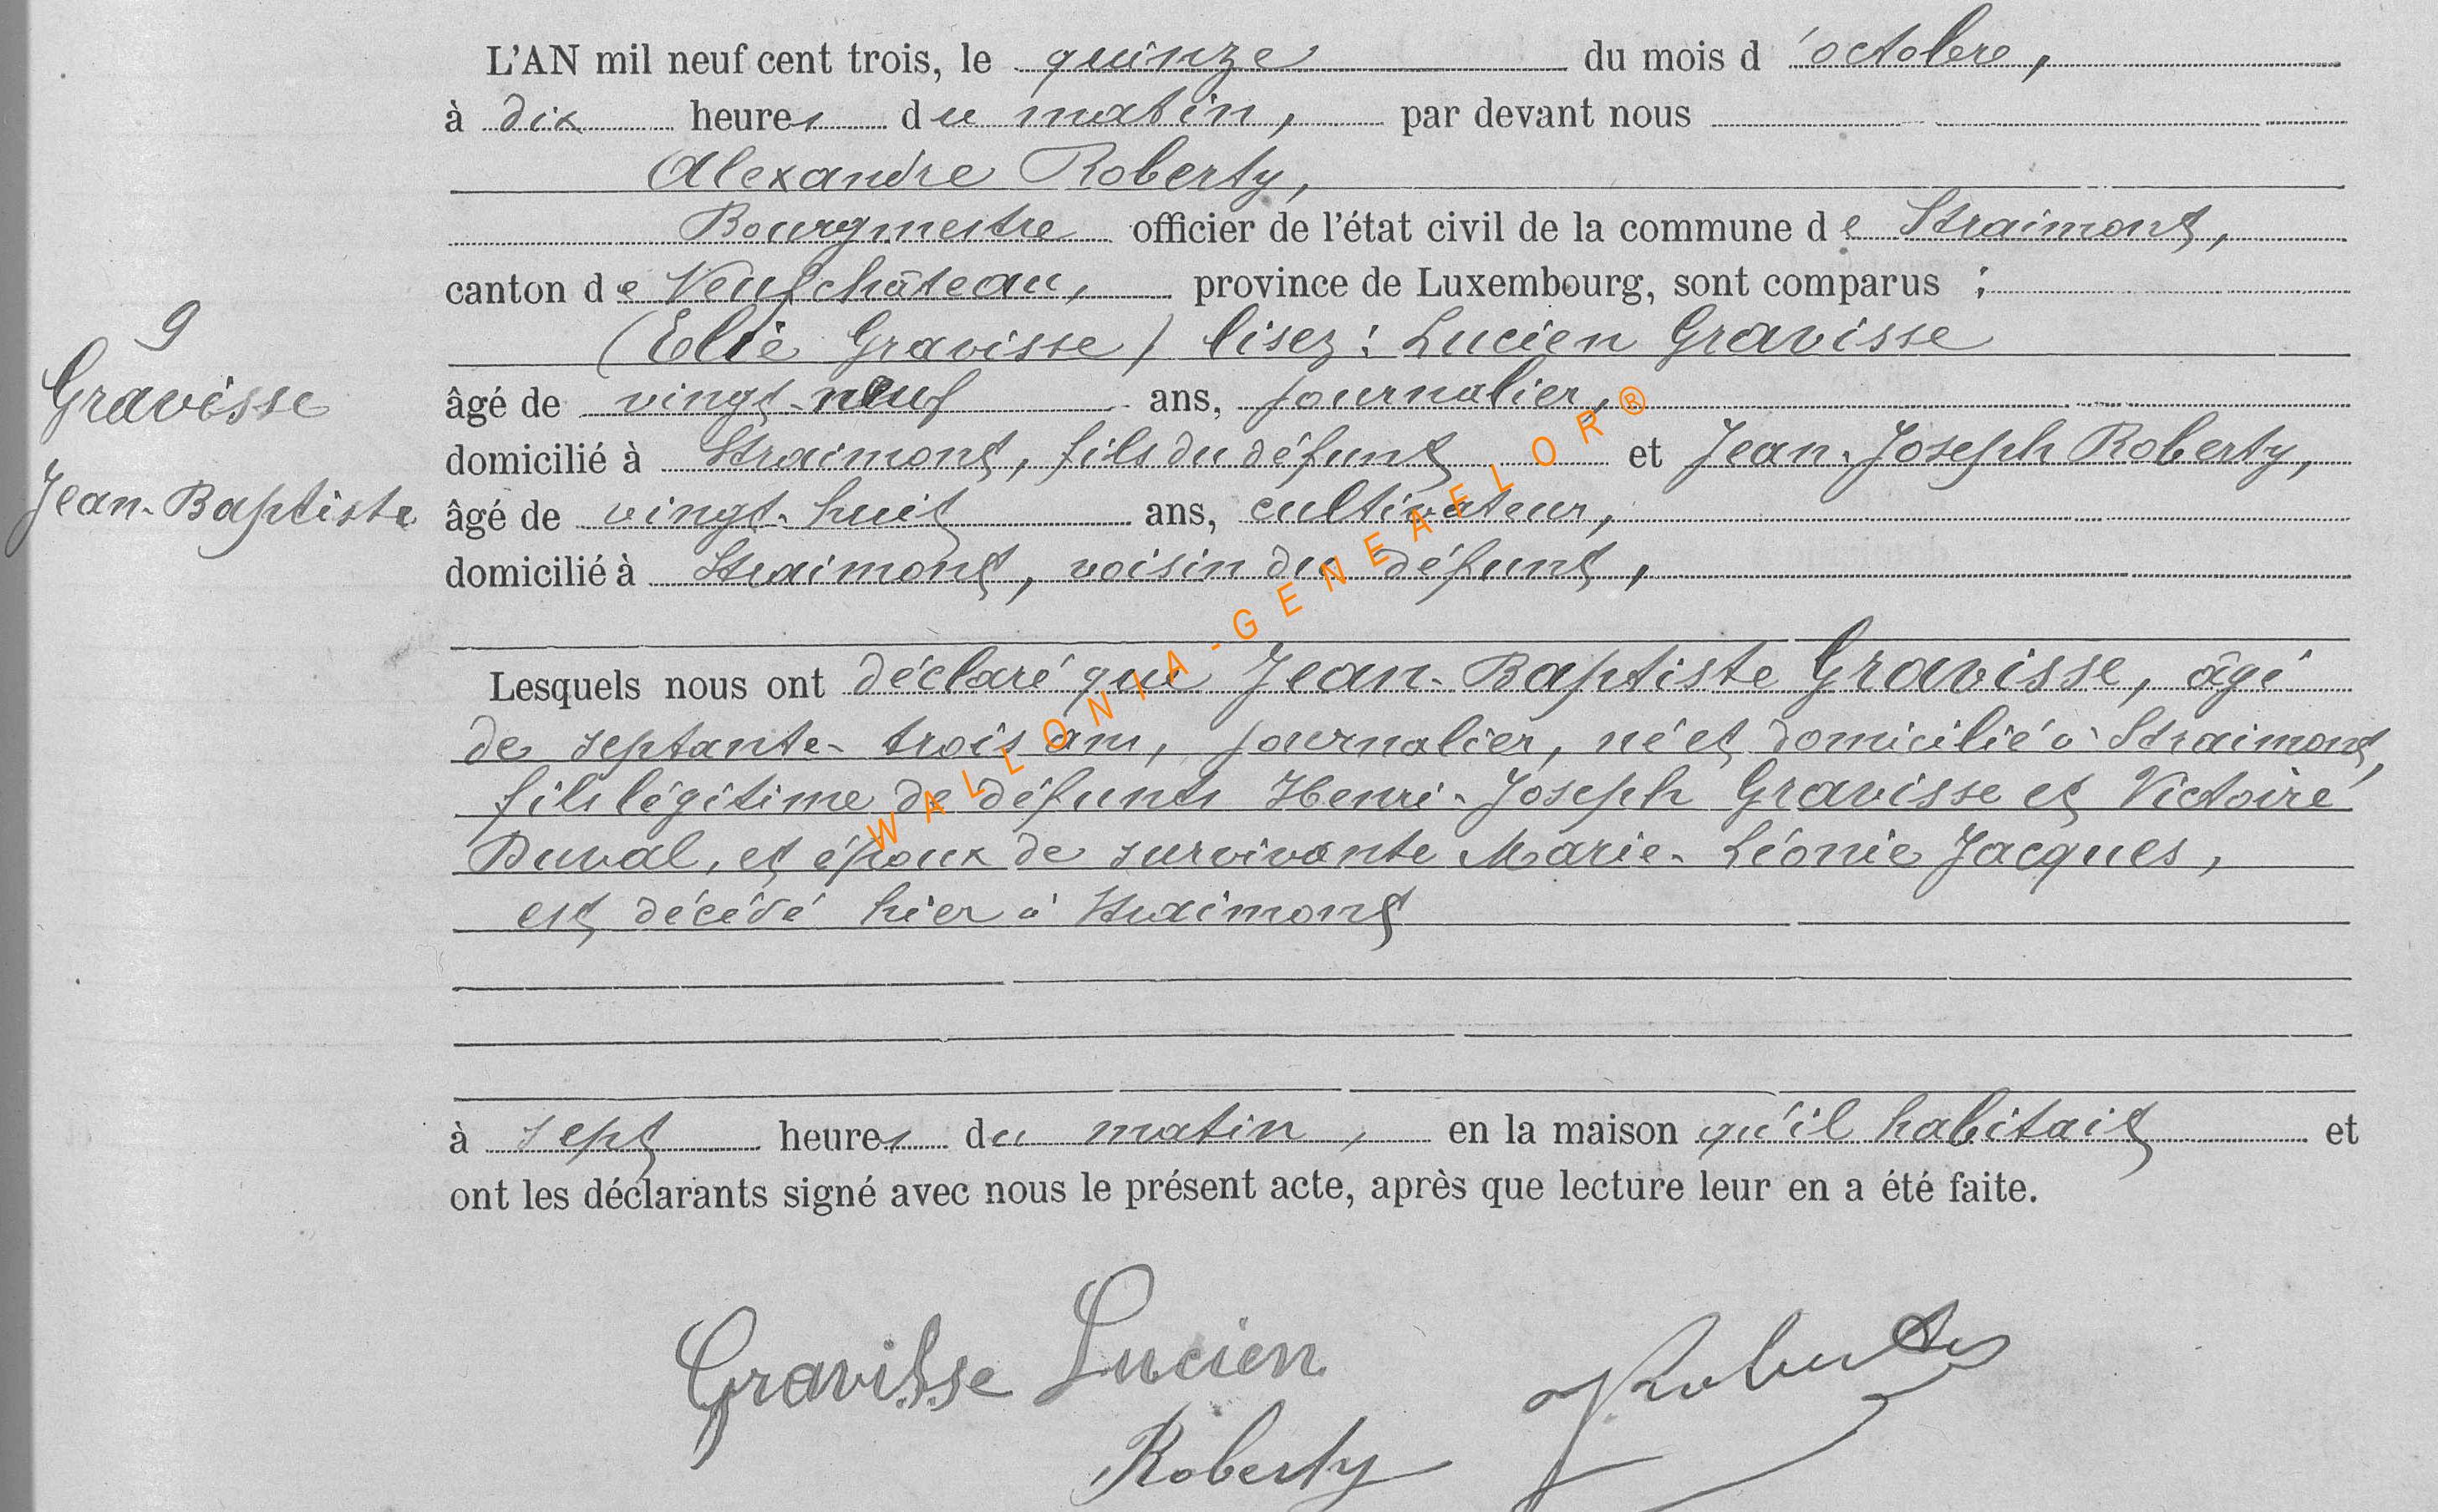 L'AN mil neuf cent trois, le quinze du mois d'octobre,
à dix heures du matin, par devant nous
Alexandre Roberty,
Bourgmestre officier de l'état civil de la commune de Straimont,
canton de Neufchâteau, province de Luxembourg, sont comparus :
(Elie Gravisse) lisez : Lucien Gravisse
âgé de vingt-neuf ans, journalier,
domicilié à Straimont, fils du défunt et Jean-Joseph Roberty,
âgé de vingt-huit ans, cultivateur,
domicilié à Straimont, voisin du défunt,
9
Gravisse
Jean-Baptiste
Lesquels nous ont déclaré que Jean-Baptiste Gravisse, âgé
de septante-trois ans, journalier, né et domicilié à Straimont,
fils légitime de défunts Henri-Joseph Gravisse et Victoire
Duval, et époux de survivante Marie-Léonie Jacques,
est décédé hier à Straimont
à sept heures du matin, en la maison qu'il habitait et
ont les déclarants signé avec nous le présent acte, après que lecture leur en a été faite.
Gravisse Lucien
Roberty
Roberty
WALLONIA-GENEAFLOR®